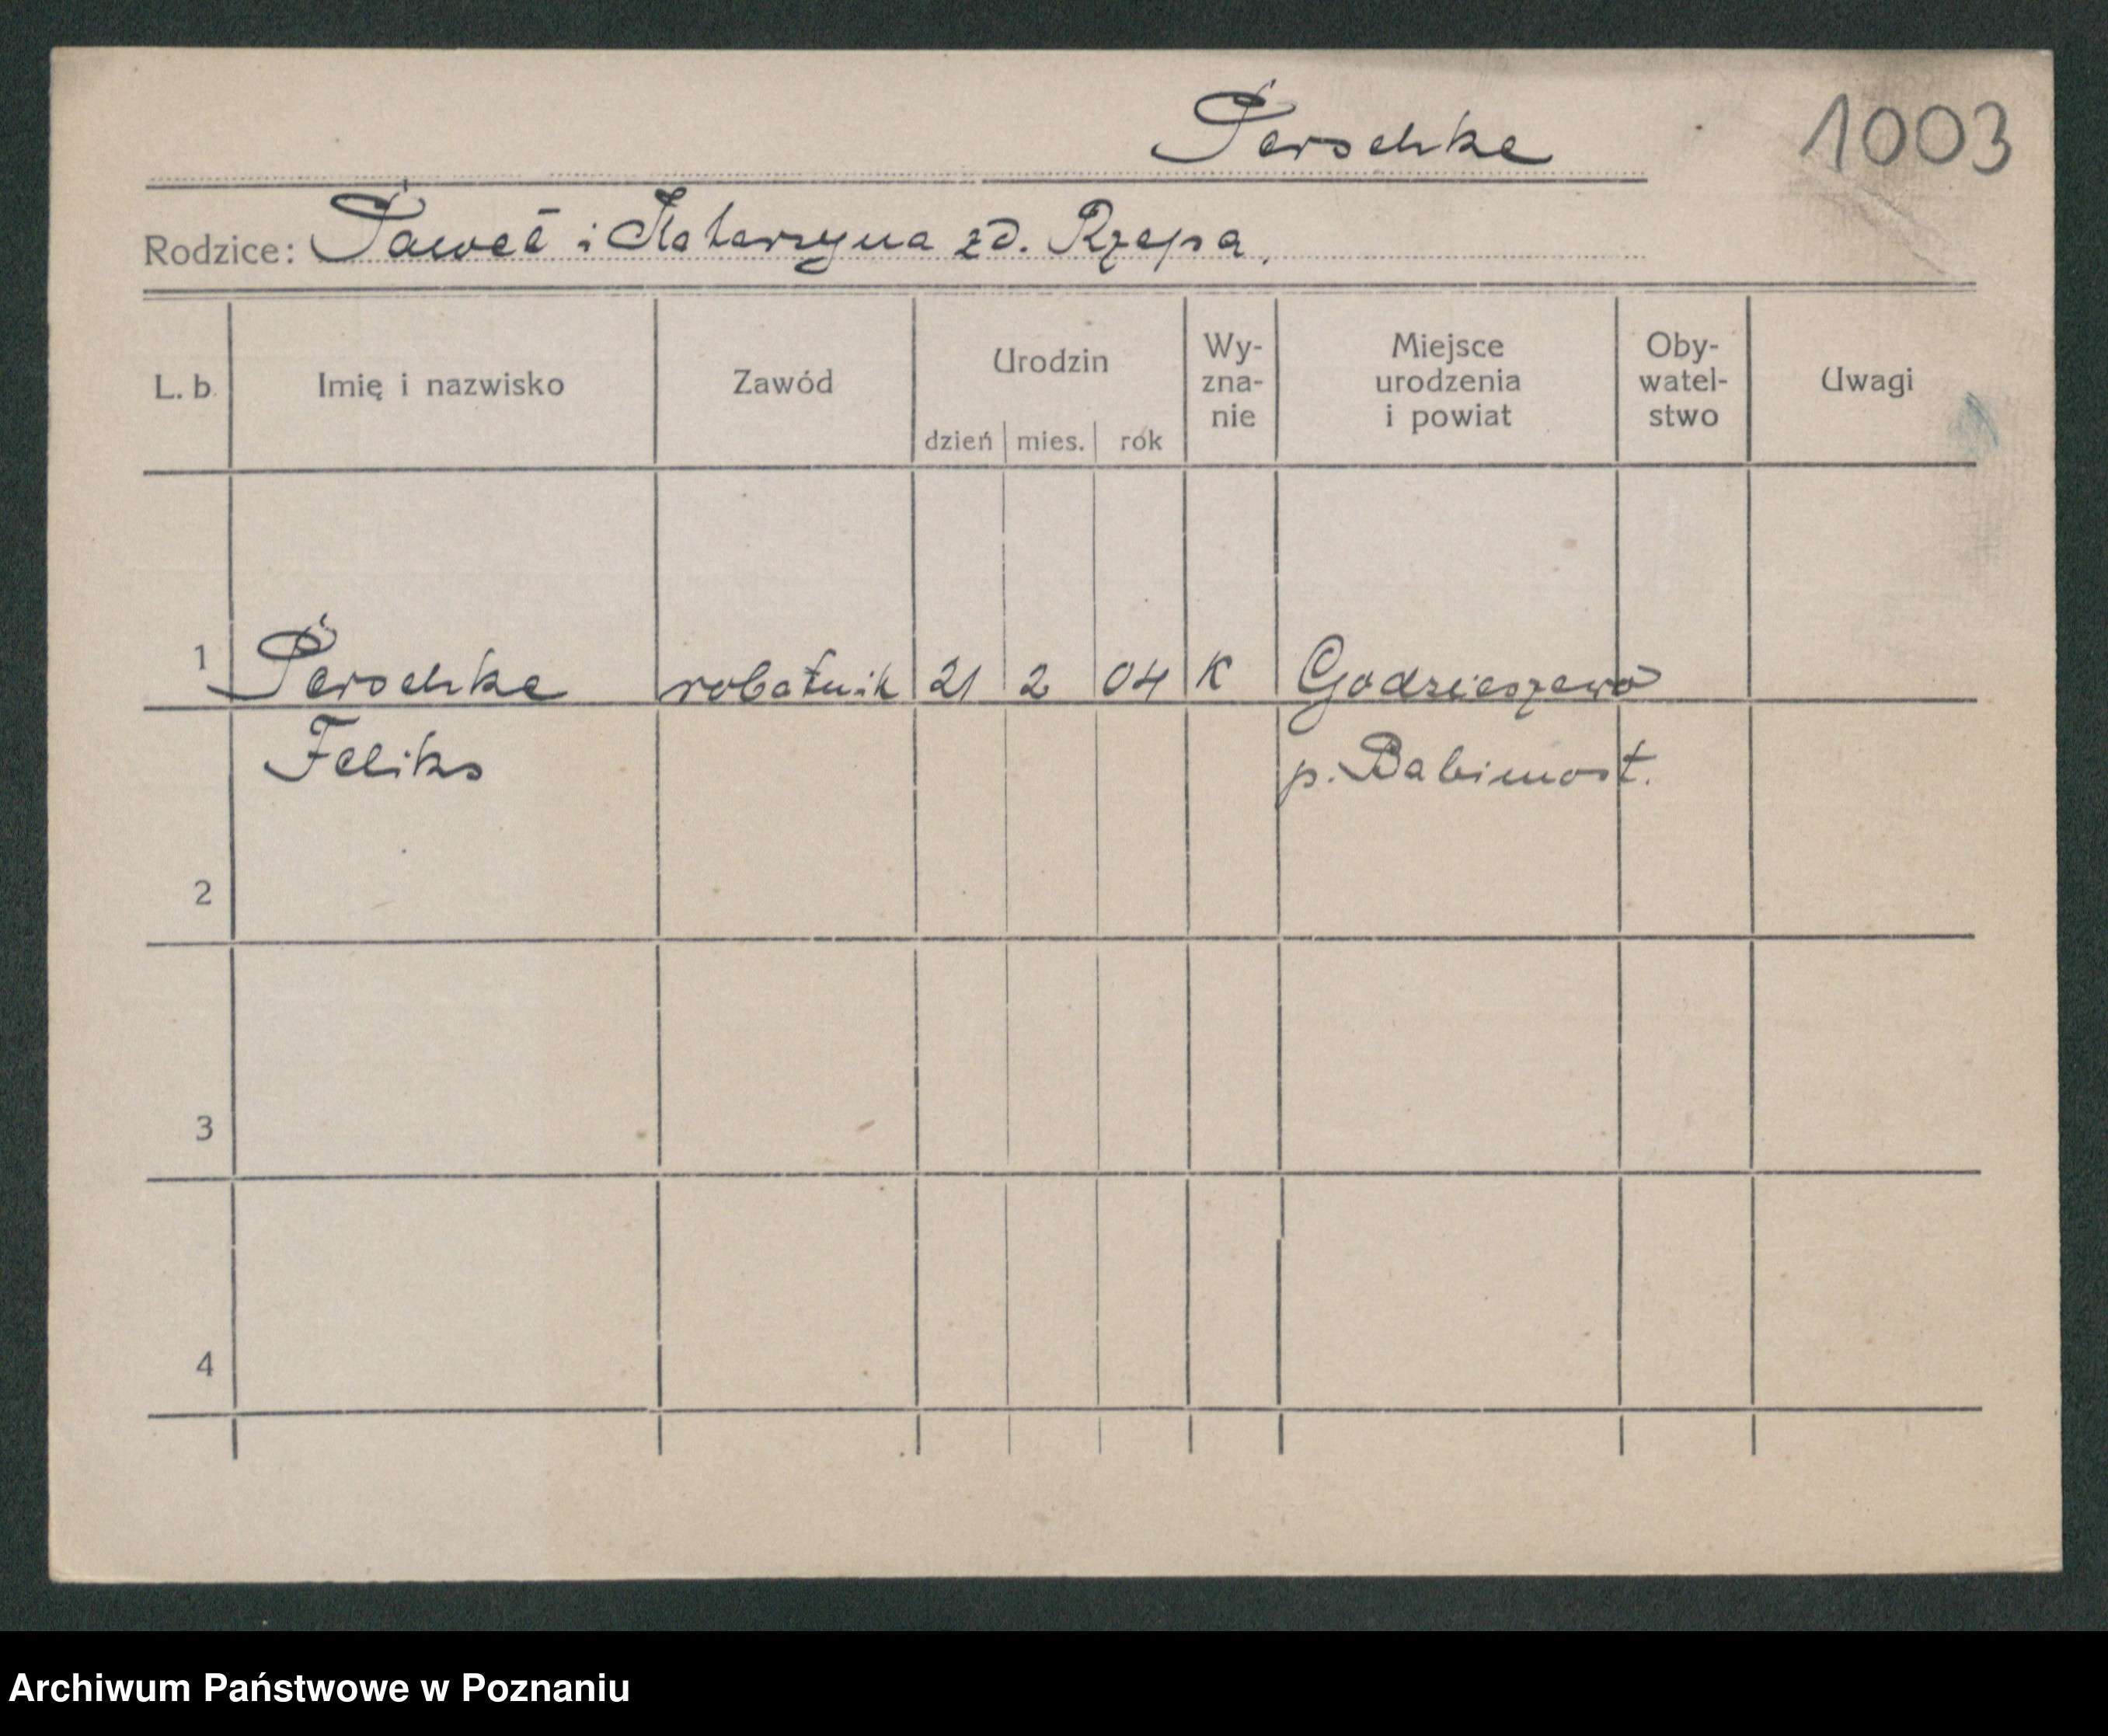 Perschke
1003
Rodzice: Paweł i Katarzyna zd. Rzepa.
L. b.
Imię i nazwisko
Zawód
Urodzin
dzień mies. rok
Wy-
zna-
nie
Miejsce
urodzenia
i powiat
Oby-
watel-
stwo
Uwagi
1 Perschke robotnik 21 2 04 K Godzieszewo
Feliks p. Babimost.
2
3
4
Archiwum Państwowe w Poznaniu